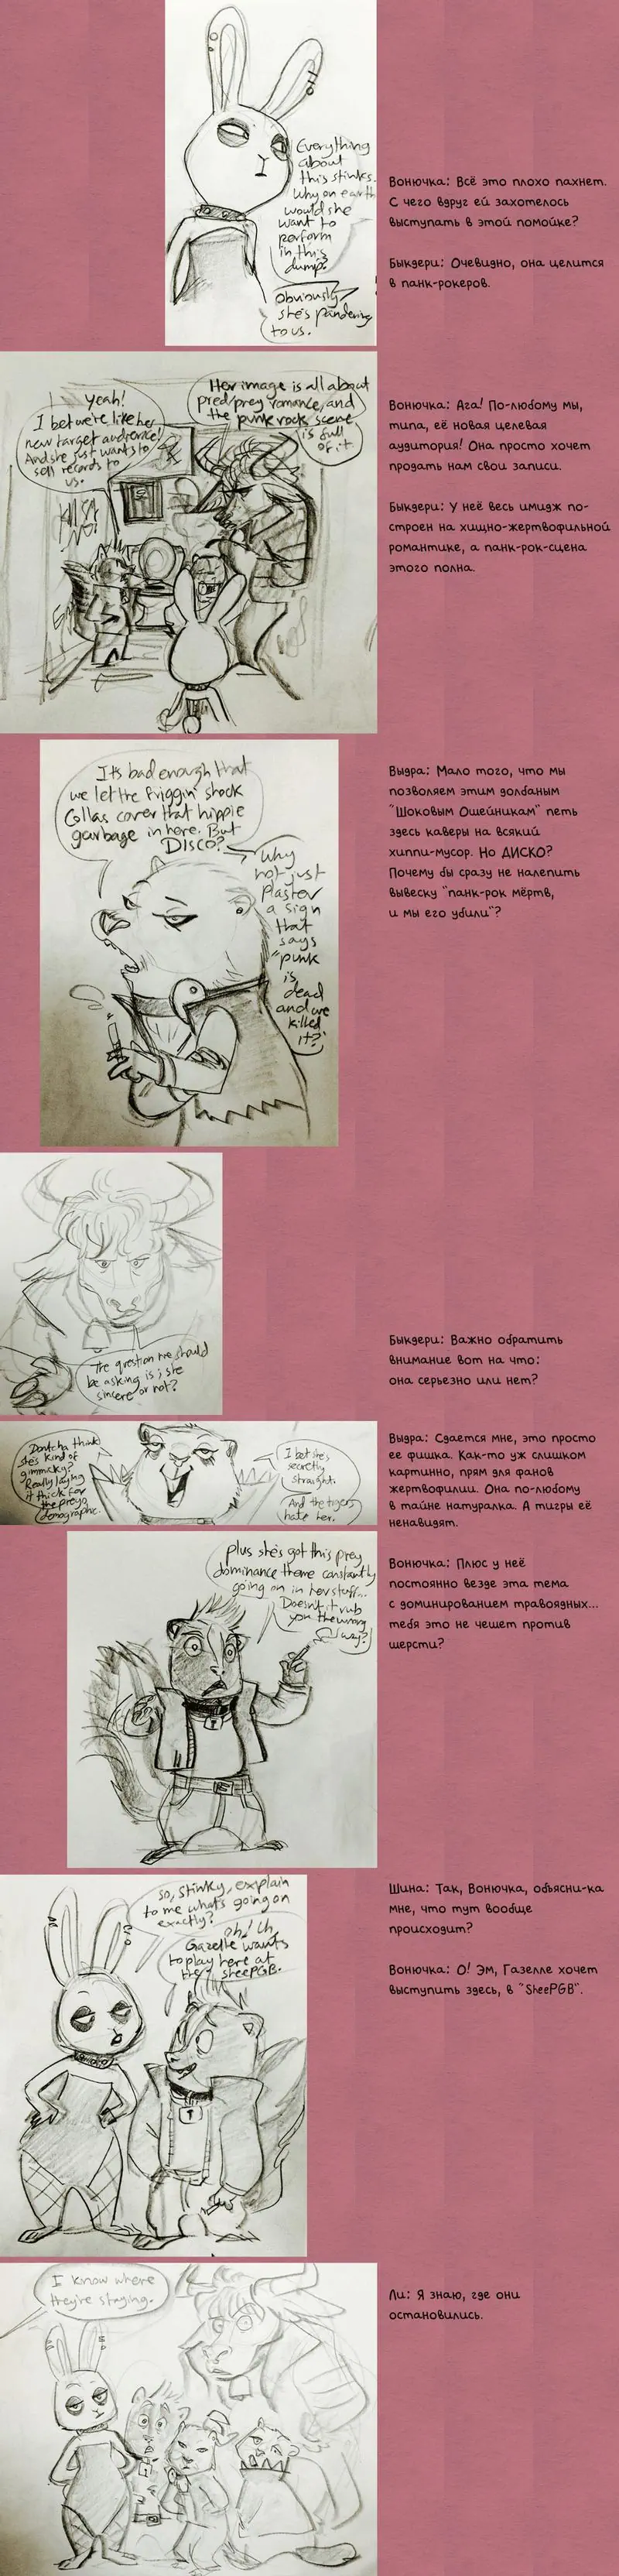 Everything
about
this stinks.
Why on earth
would she
want to
perform
in this
dump?
Obviously
she's pandering
to us.
Вонючка: Всё это плохо пахнет.
С чего вдруг ей захотелось
выступать в этой помойке?
Быкдери: Очевидно, она целится
в панк-рокеров.
Yeah!
I bet we're like her
new target audience!
And she just wants to
sell records to
us.
Her image is all about
pred/prey romance, and
the punk rock scene
is full
of it.
Вонючка: Ага! По-любому мы,
типа, её новая целевая
аудитория! Она просто хочет
продать нам свои записи.
Быкдери: У неё весь имидж по-
строен на хищно-жертвофильной
романтике, а панк-рок-сцена
этого полна.
It's bad enough that
we let the friggin' shock
Collas cover that hippie
garbage in here. But
DISCO?
Why
not just
plaster
a sign
that
says
"punk
is
dead
and we
killed
it?"
Выдра: Мало того, что мы
позволяем этим долбаным
"Шоковым Ошейникам" петь
здесь каверы на всякий
хиппи-мусор. Но ДИСКО?
Почему бы сразу не налепить
вывеску "панк-рок мёртв,
и мы его убили"?
The question we should
be asking is; is she
sincere or not?
Быкдери: Важно обратить
внимание вот на что:
она серьезно или нет?
Dontcha think
she's kind of
gimmicky?
Really laying
it thick for
the preyo
demographic.
I bet she's
secretly
straight.
And the tigers
hate her.
Выдра: Сдается мне, это просто
ее фишка. Как-то уж слишком
картинно, прям для фанов
жертвофилии. Она по-любому
в тайне натуралка. А тигры её
ненавидят.
plus she's got this prey
dominance theme constantly
going on in her stuff...
Doesn't it rub
you the wrong
way?
Вонючка: Плюс у неё
постоянно везде эта тема
с доминированием травоядных...
тебя это не чешет против
шерсти?
So, Stinky, explain
to me what's going on
exactly?
oh! Uh,
Gazelle wants
to play here at
the SheePGB.
Шина: Так, Вонючка, объясни-ка
мне, что тут вообще
происходит?
Вонючка: О! Эм, Газелле хочет
выступить здесь, в "SheePGB".
I know where
they're staying.
Ли: Я знаю, где они
остановились.